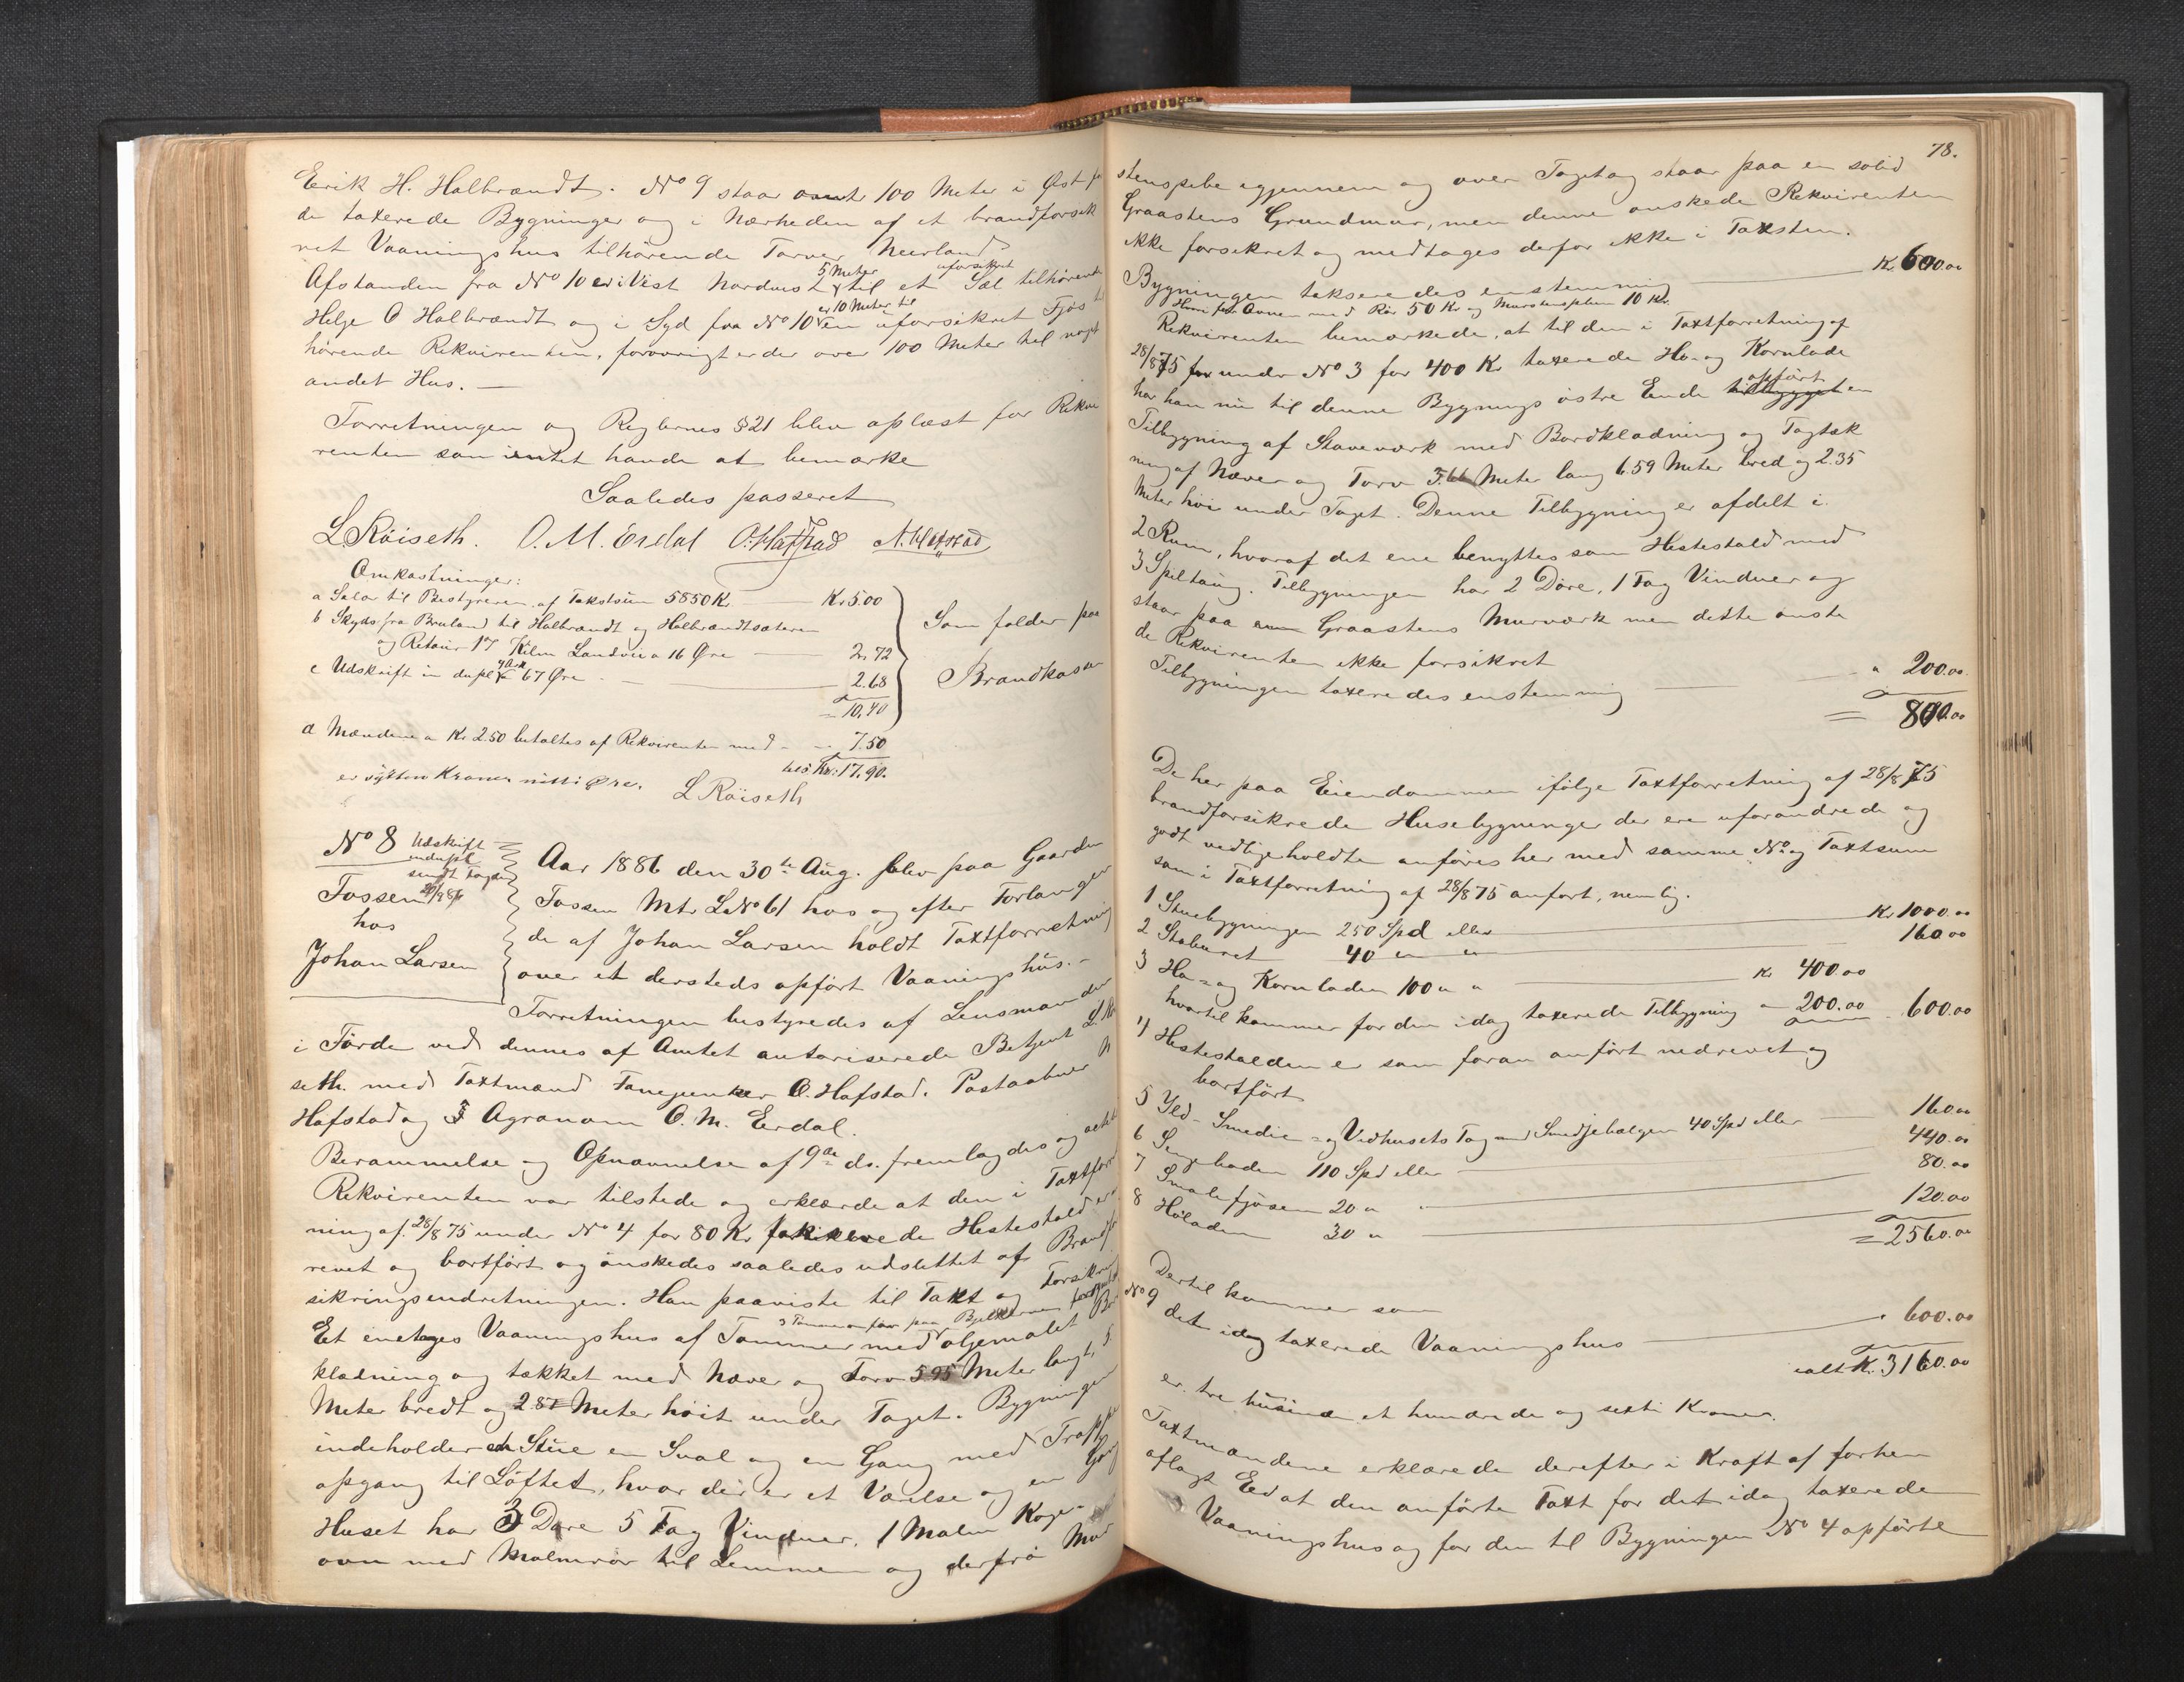 Erik H. Halbrændt. No 9 staar omtr 100 Meter i Øst
de taxerede Bygninger og i Nærheden af et brandforsik
ret Vaaningshus tilhørende Neerland
5 Meter uforsikret
Afstanden fra No 10 er i Vest Nordvest til et Sæl tilhørende
er 10 Meter til
Helje O Halbrændt og i Syd fra No 10 en uforsikret Fjøs
hørende Rekvirenten, forøvrigt er der over 100 Meter til
andet Hus. —
Forretningen og Reglernes § 21 blev oplæst for Rekvi
renten som intet havde at bemærke
Saaledes passeret
L. Röiseth. O. M. Erdal O. Hafstad A. Hafstad
Omkostninger:
a Salær til Bestyreren af Takstsum 5850 Kr — Kr 5.00
b Skyds fra Bruland til Halbrændt og Halbrændtsæteren
og Retour 17 Kilm Landvei a 16 Øre — 2.72
c Udskrift in duplo 4 Ark a 67 Øre — 2.68
= 10,40
Som falder paa
Brandkassen
d Mændene a Kr 2.50 betaltes af Rekvirenten med - 7.50
Kr: 17.90.
er sytten Kroner nitti Øre. L Röiseth
No 8 Udskrift
in dupl
sendt Fogden
Fossen
hos
Johan Larsen
Aar 1886 den 30te Aug. blev paa Gaarden
Fossen Mtr L No 61 hos og efter Forlangen
de af Johan Larsen holdt Taxtforretning
over et dersteds opført Vaaningshus. —
Forretningen bestyredes af Lensmanden
i Førde ved dennes af Amtet autoriserede Betjent L. Rø
seth. med Taxtmænd Fanejunker O. Hafstad. Postaabner N
Hafstad og Agronom O. M. Erdal.
Berammelse og Opnævnelse af 9de ds. fremlagdes og
Rekvirenten var tilstede og erklærde at den i Taxtforret
ning af 28/8 75 under No 4 for 80 Kr forsikrede Hestestald er
revet og bortført og ønskedes saaledes udslettet af Brandfor
sikringsindretningen. Han paaviste til Taxt og Forsikring
Et enetages Vaaningshus af Tømmer med oljemalet Bord
klædning og tækket med Næver og Torv 5.95 Meter langt, 5
Meter bredt og 2.87 Meter høit under Taget. Bygningen
indeholder en Stue en Sval og en Gang med Trappe
opgang til Løftet, hvor der er et Værelse og en Gang
Huset har 3 Døre 5 Fag Vinduer, 1 Malm Koge-
ovn med Malmrør til Lemmen og derfra Mur
78.
stenspibe igjennem og over Taget og staar paa en solid
Graastens Grundmur, men denne ønskede Rekvirenten
ikke forsikret og medtages derfor ikke i Taxten.
Bygningen takseredes enstemmig — Kr 600.00
Ovnen med Rør 50 Kr og Murstenspiben 10 Kr.
Rekvirenten bemærkede, at til den i Taxtforretning af
28/8 75 under No 3 for 400 Kr taxerede Hø- og Kornlade
opført
har han nu til denne Bygnings østre Ende tilbygget en
Tilbygning af Stavværk med Bordklædning og Tagtæk
ning af Næver og Torv Meter lang 6.59 Meter bred og 2.35
Meter høi under Taget. Denne Tilbygning er afdelt i
2 Rum, hvoraf det ene benyttes som Hestestald med
3 Spiltaug. Tilbygningen har 2 Døre, 1 Fag Vinduer og
staar paa Graastens Murværk men dette ønske
de Rekvirenten ikke forsikret
Tilbygningen taxeredes enstemmig — " 200.00
= 800.00
De her paa Eiendommen ifølge Taxtforretning af 28/8 75
brandforsikrede Husebygninger der ere uforandrede og
godt vedligeholdte anføres her med samme No og Taxtsum
som i Taxtforretning af 28/8 75 anført, nemlig.
1 Stuebygningen 250 Spd eller — Kr 1000.00
2 Stabburet 40 " " — 160.00
3 Hø- og Kornladen 100 " " — Kr 400.00
hvortil kommer for den idag taxerede Tilbygning " 200.00 600.00
4 Hestestalden er som foran anført nedrevet og
bortført
5 Ild- Smedie- og Vedhusets Tag med Smedjebælgen 40 Spd eller — 160.00
6 Sengeboden 110 Spd eller — 440.00
7 Smalefjøsen 20 " — 80.00
8 Høladen 30 " — 120.00
= 2560.00
Dertil kommer som
No 9 det idag taxerede Vaaningshus — " 600.00
ialt Kr. 3160.00
er. tre tusinde et hundrede og sexti Kroner.
Taxtmændene erklærede derefter i Kraft af forhen
aflagt Eed at den anførte Taxt for det idag taxerede
Vaaningshus og for den til Bygningen No 4 opførte